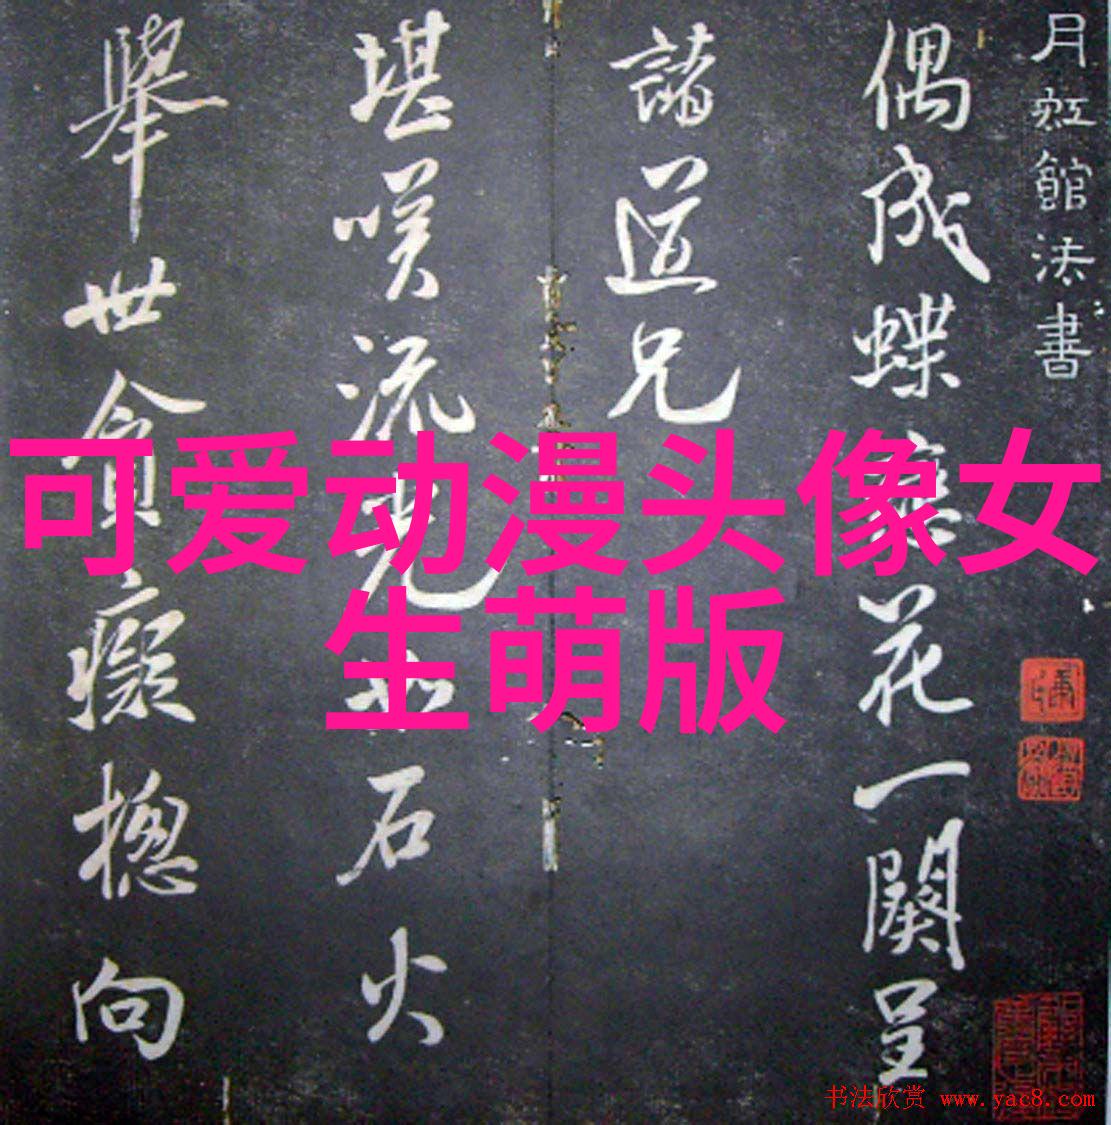 月虹館法書
偶成蝶戀花一闋呈
諸道兄
堪咲流光如石火
舉世貪癡摠向
可爱动漫头像女
生萌版
书法欣赏 www.yac8.com